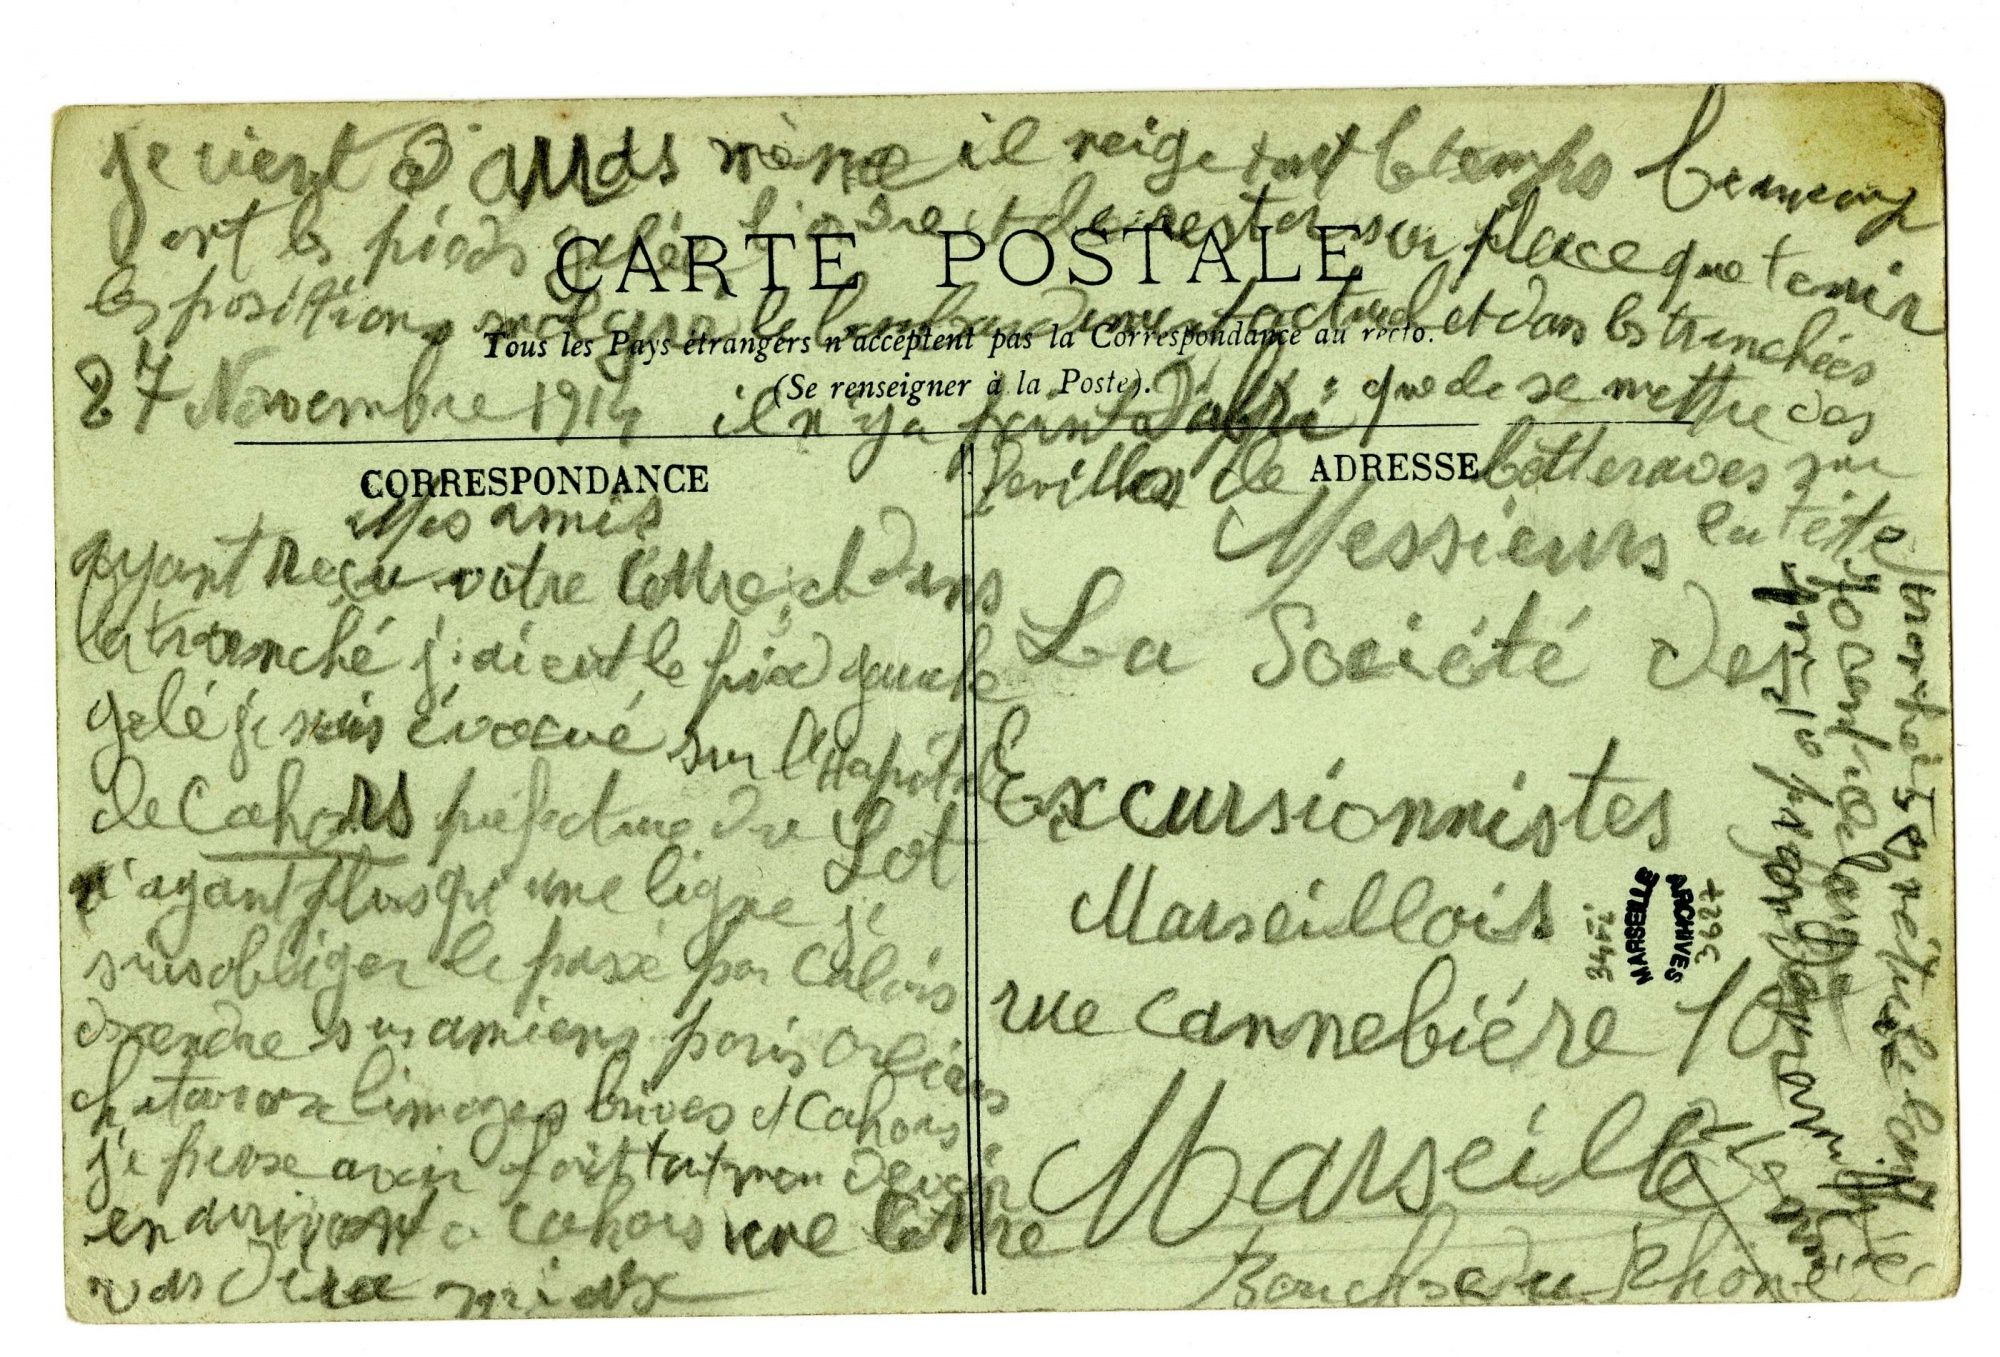 je vient d'
il neige tout le temps beaucoup
ont les pieds gelée l'ordre et de rester sur place que tenir
les positions malgré le bombardement actuel et dans les trenchées
CARTE POSTALE
Tous les Pays étrangers n'acceptent pas la Correspondance au recto.
(Se renseigner à la Poste).
27 Novembre 1914 il n'y a point d'abri que de se mettre des
feuilles de betteraves sur
la tête
CORRESPONDANCE
Mes amis
ayant reçu votre lettre et dans
la tranché j'ai eut le pied gauche
gelé je suis évacué sur l'Hapital
de Cahors préfecture du Lot
n'ayant plus qu'une ligne je
suis obliger de passé par Calais
decendre sus amiens paris Orléans
chatauroux limoges brives et Cahors
je pense avoir fait tout mon devoir
en arrivant a Cahors une lettre
vas dira mieux
ADRESSE
Messieurs
La Société des
Excursionnistes
Marseillois
rue Cannebiére 10
Marseille
Bouches du Rhône
34Fi
MARSEILLE
ARCHIVES
3627